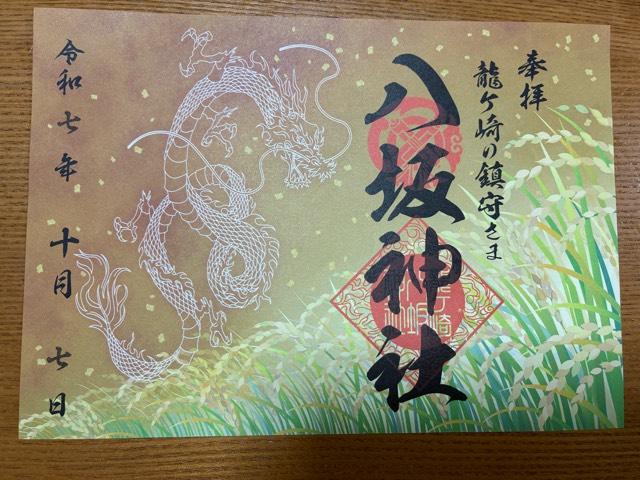 奉拝
龍ケ崎の鎮守さま
八坂神社
令和七年 十月 七日